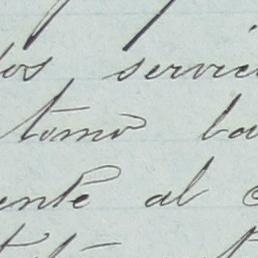 los servici
tomó ba
ente al